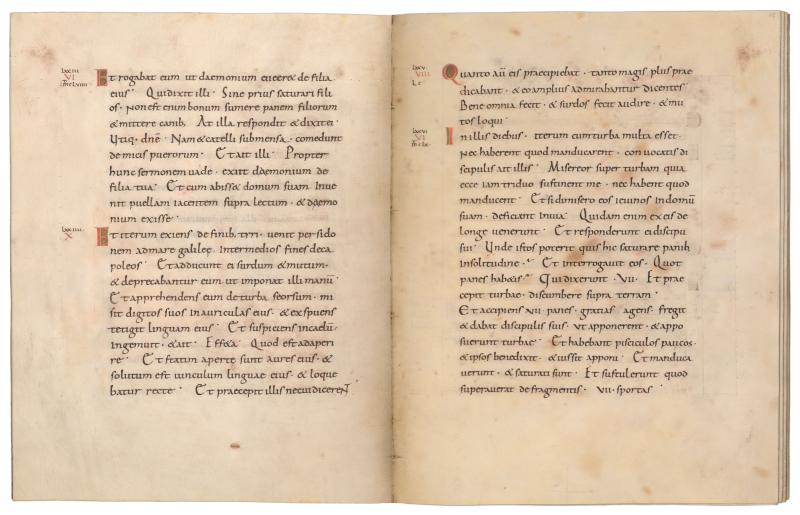 Et rogabat eum ut daemonium eiceret de filia
eius. Qui dixit illi. Sine prius saturari fili
os. Non est enim bonum sumere panem filiorum
& mittere canib. At illa respondit & dixit ei.
Utiq. dnē. Nam & catelli sub mensa. comedunt
de micis puerorum. Et ait illi. Propter
hunc sermonem vade. exiit daemonium de
filia tua. Et cum abiss& domum suam. Inve
nit puellam iacentem supra lectum. & daemo
nium exisse.
Et iterum exiens de finib. tyri. venit per sido
nem ad mare galileę. inter medios fines deca
poleos. Et adducunt ei surdum & mutum.
& deprecabantur eum ut imponat illi manū.
Et apprehendens eum de turba seorsum. mi
sit digitos suos in auriculas eius. & expuens
tetigit linguam eius. Et suspiciens in caelū.
ingemuit. & ait. Effeta Quod est adaperi
re. Et statim apertę sunt aures eius. &
solutum est vinculum linguae eius. & loque
batur recte. Et praecepit illis ne cui dicerent
lxxv
VIII
Quanto aū eis praecipiebat. tanto magis plus prae
dicabant. & eo amplius admirabantur dicentes.
Bene omnia fecit. & surdos fecit audire. & mu
tos loqui
lxxvi
VI
In illis diebus. iterum cum turba multa esset.
Nec haberent quod manducarent. convocatis di
scipulis ait illis. Misereor super turbam quia
ecce iam triduo sustinent me. nec habent quod
manducent. Et si dimisero eos ieiunos in domū
suam. deficiant in via. Quidam enim ex eis de
longe venerunt. Et responderunt ei discipu
li sui. Unde istos poterit quis hic saturare panib.
in solitudine. Et interrogavit eos. Quot
panes habetis. Qui dixerunt. VII. Et prae
cepit turbae. discumbere supra terram.
Et accipiens VII. panes. gratias agens. fregit
& dabat discipulis suis. ut apponerent. & appo
suerunt turbae. Et habebant pisciculos paucos.
& ipsos benedixit. & iussit apponi. Et manduca
verunt. & saturati sunt. Et sustulerunt quod
superaverat de fragmentis. VII. sportas